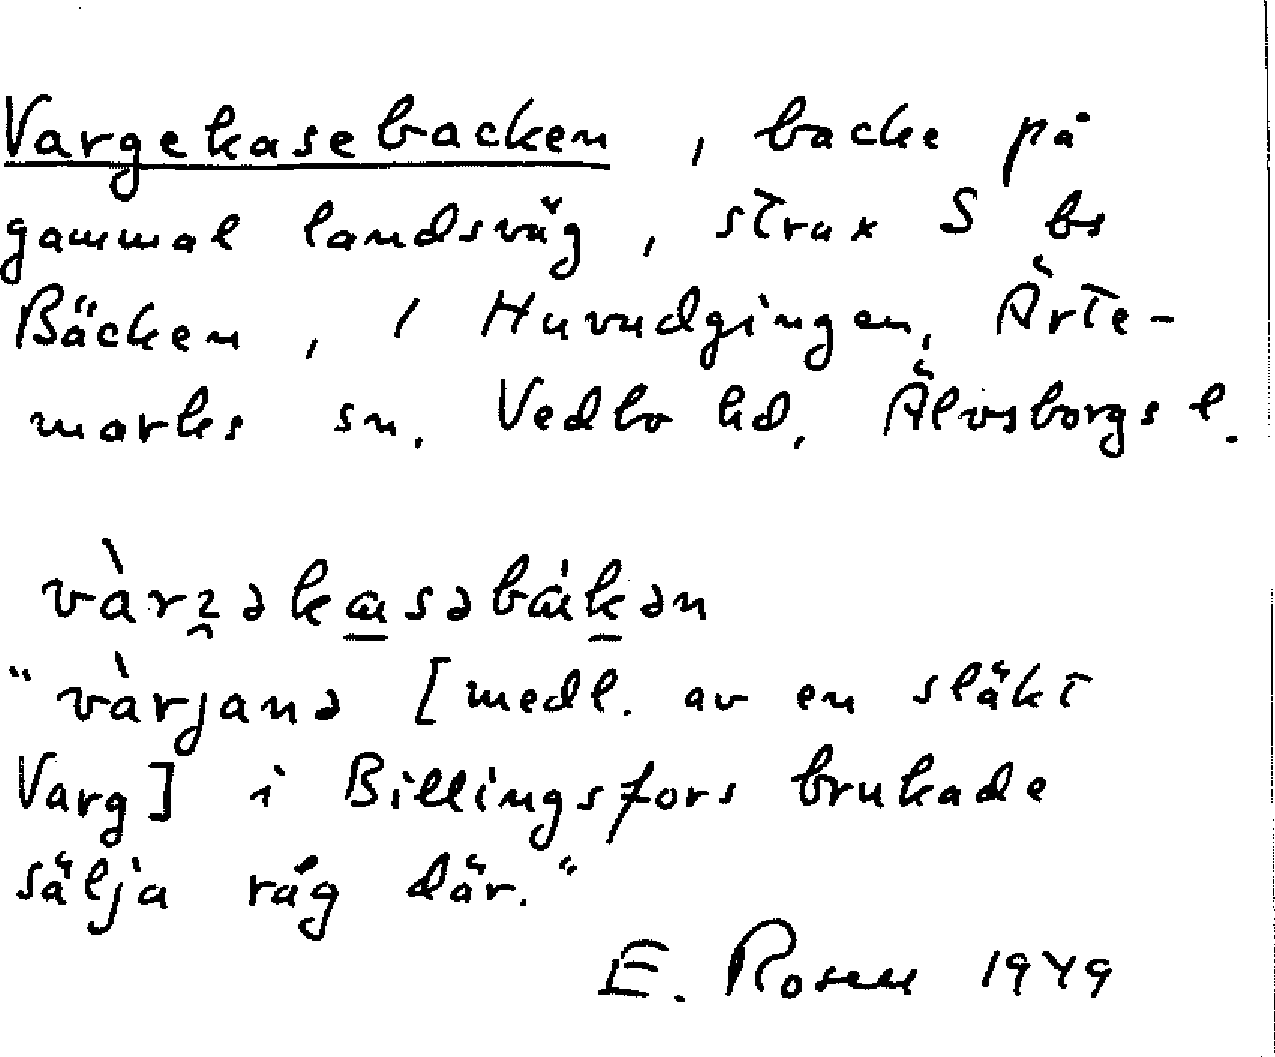 Vargekasebacken, backe på
gammal landsväg, strax S bs
Bäcken, i Huvudgingen, Ärte-
marks sn. Vedbo hd, Älvsborgs l.
"vàrjanə [medl. av en släkt
Varg] i Billingsfors brukade
sälja råg där."
E. Rosen 1949